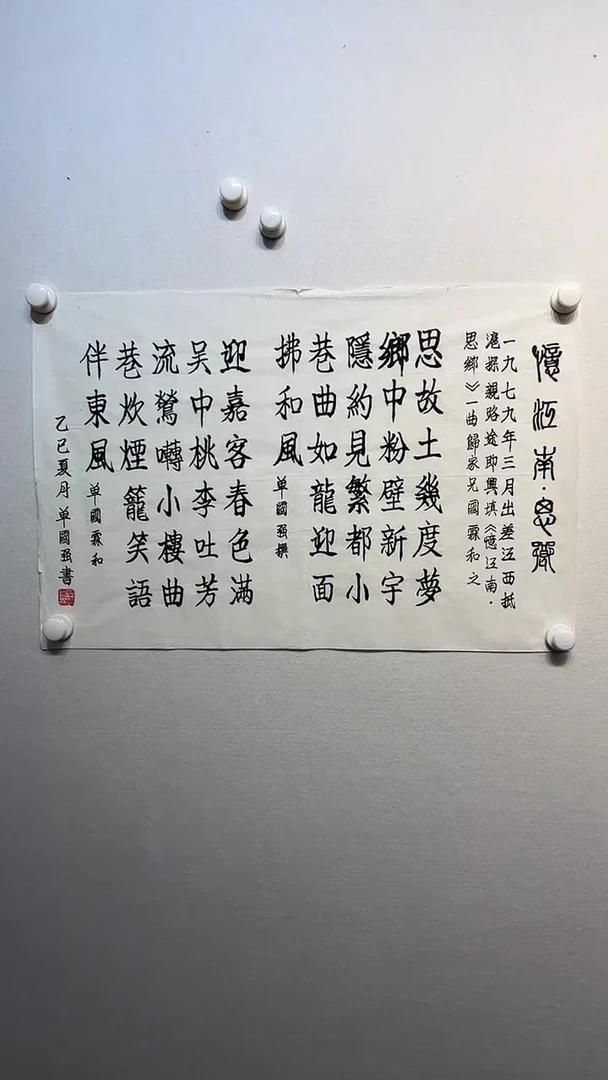 憶江南·思鄉
一九七九年三月出差江西抵
滬探親路途即興填《憶江南·
思鄉》一曲歸家兄國霖和之
思故土幾度夢
鄉中粉壁新宇
隱約見繁都小
巷曲如龍迎面
拂和風單國強撰
迎嘉客春色滿
吳中桃李吐芳
流鶯囀小樓曲
巷炊煙籠笑語
伴東風單國霖和
乙巳夏月單國強書